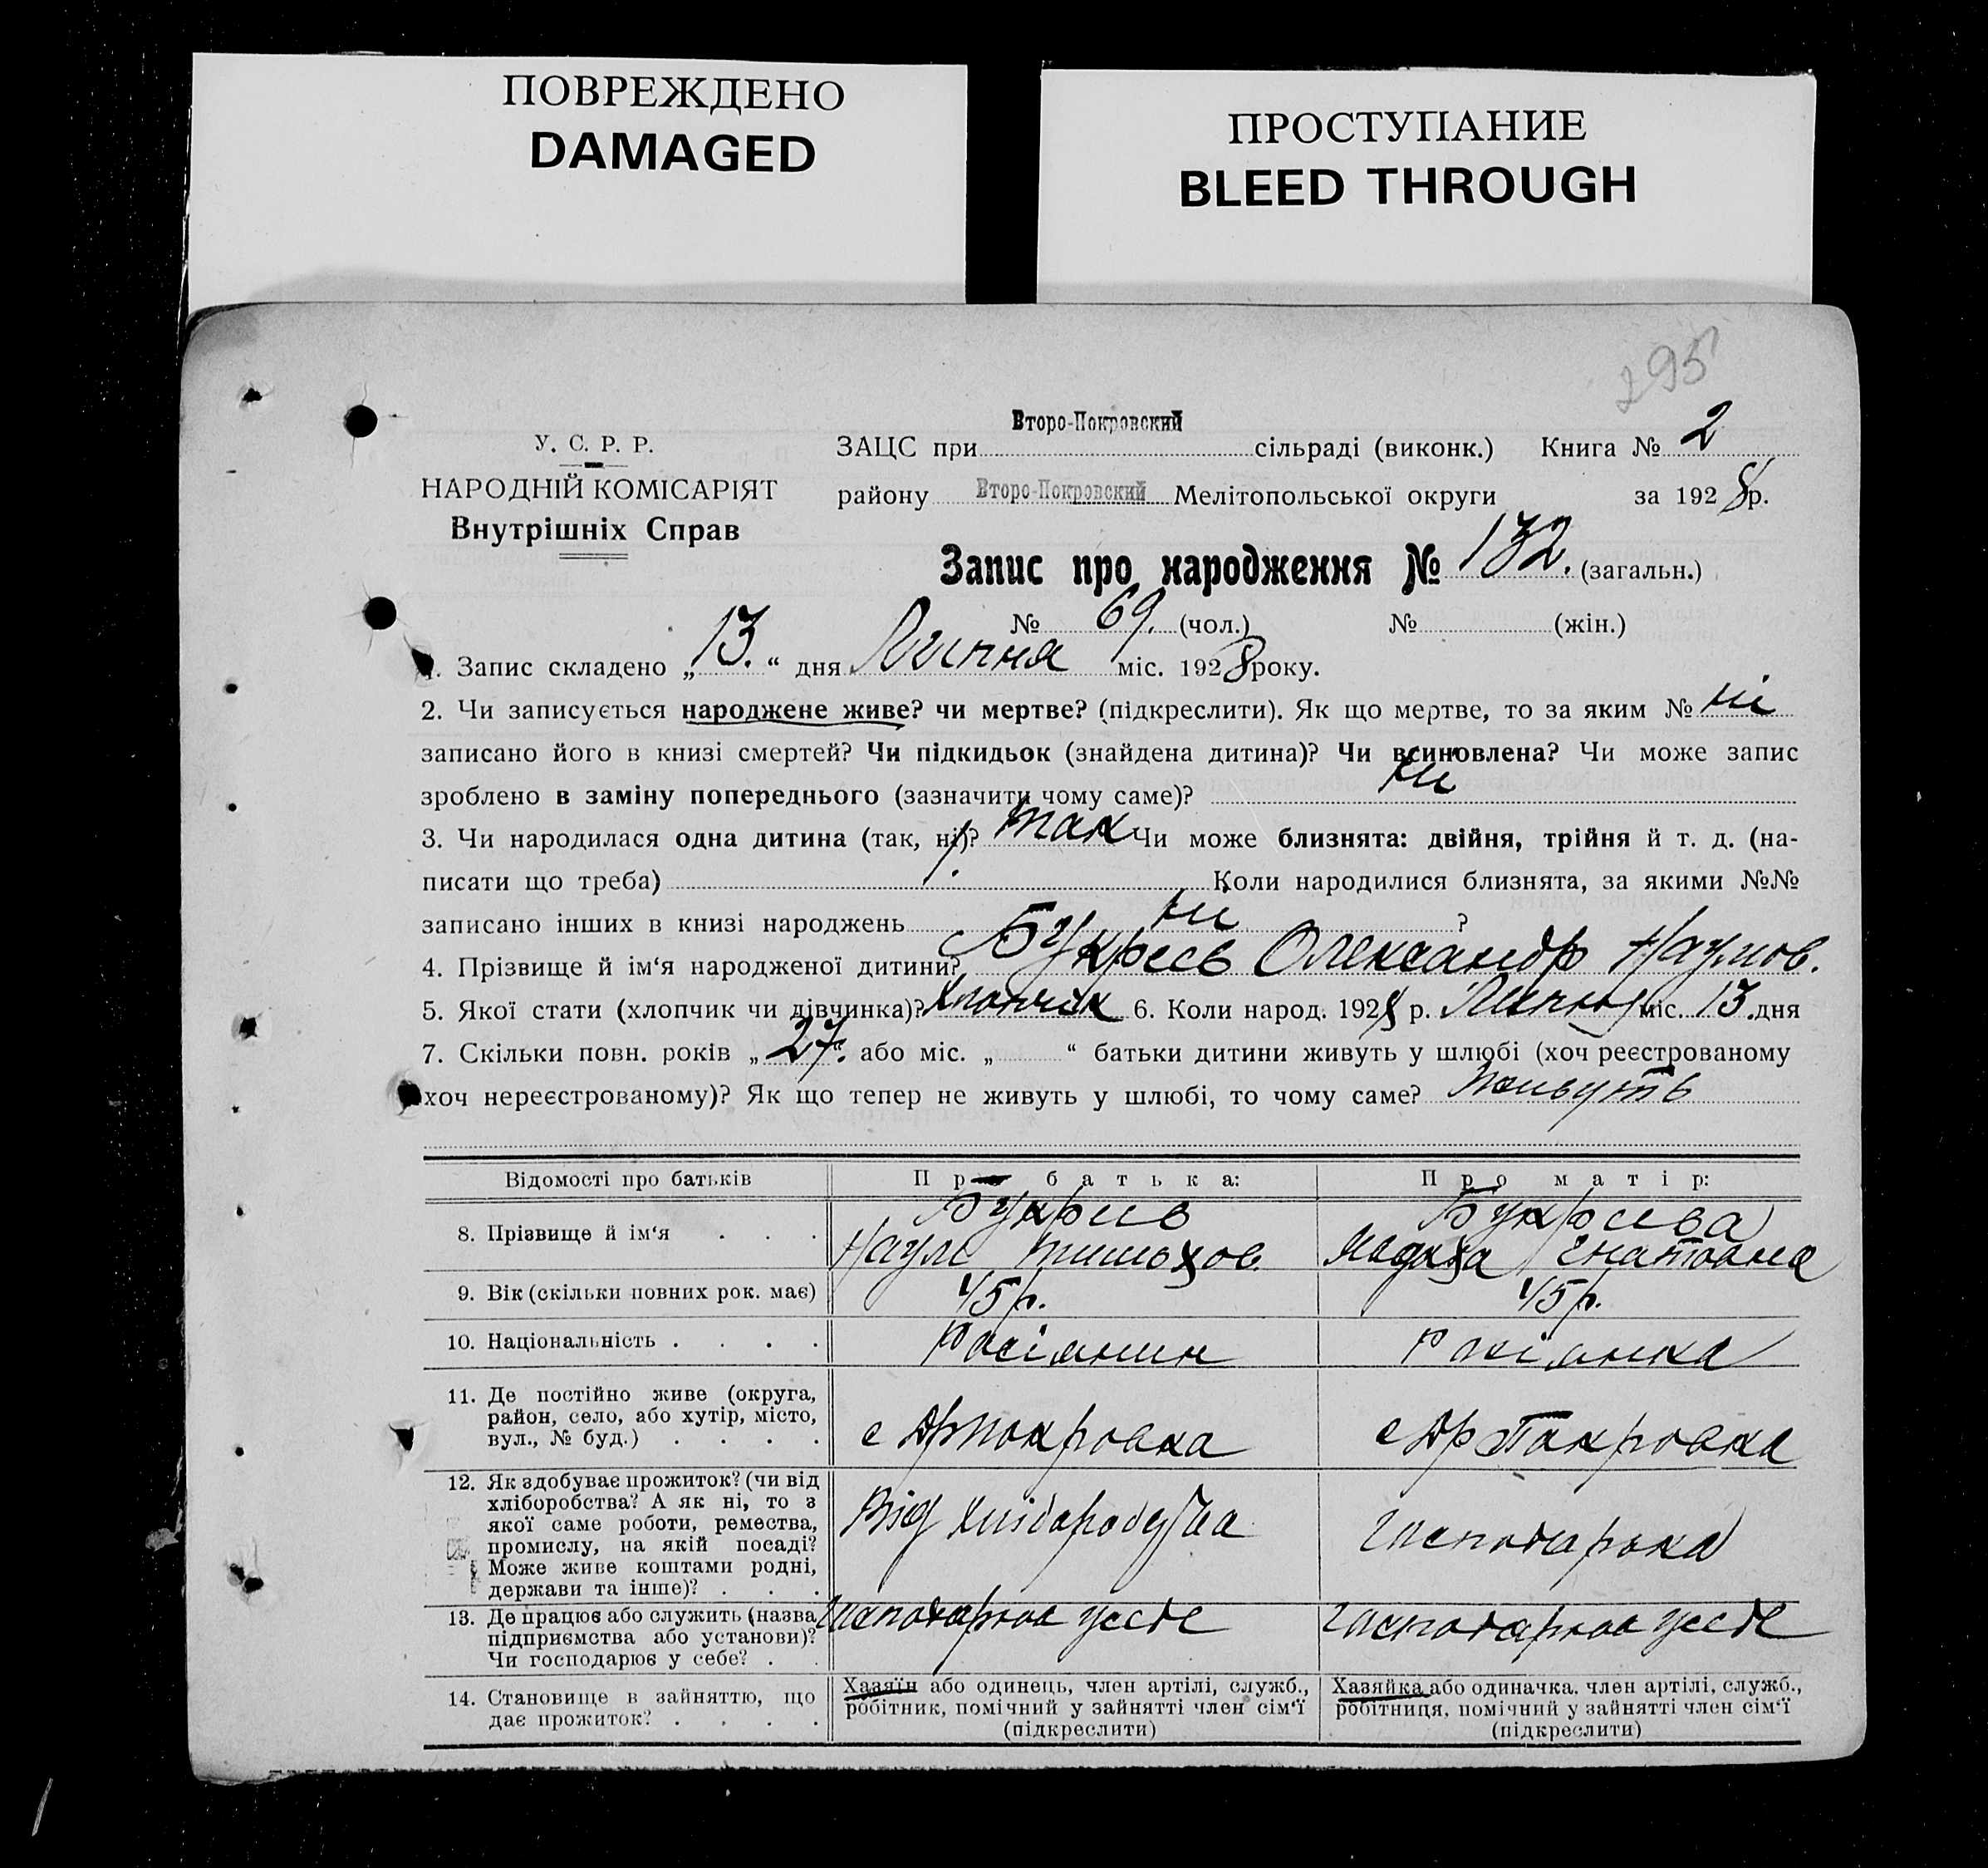 ПОВРЕЖДЕНО
DAMAGED
ПРОСТУПАНИЕ
BLEED THROUGH
295
У. С. Р. Р.
НАРОДНІЙ КОМІСАРІЯТ
Внутрішніх Справ
ЗАЦС при Второ-Покровский сільраді (виконк.) Книга № 2
району Второ-Покровский Мелітопольської округи за 1928 р.
Запис про народження № 132. (загальн.)
№ 69. (чол.) № (жін.)
1. Запис складено „13.“ дня Липня міс. 1928 року.
2. Чи записується народжене живе? чи мертве? (підкреслити). Як що мертве, то за яким № ні
записано його в книзі смертей? Чи підкидьок (знайдена дитина)? Чи всиновлена? Чи може запис
зроблено в заміну попереднього (зазначити чому саме)? ни
3. Чи народилася одна дитина (так, ні)? так Чи може близнята: двійня, трійня й т. д. (на-
писати що треба) Коли народилися близнята, за якими №№
записано інших в книзі народжень ни ?
4. Прізвище й ім‘я народженої дитини? Букреєв Олександр Наумов.
5. Якої стати (хлопчик чи дівчинка)? Хлопчик 6. Коли народ. 1928 р. Липня міс. 13. дня
7. Скільки повн. років „27“. або міс. „ “ батьки дитини живуть у шлюбі (хоч реєстрованому
хоч нереєстрованому)? Як що тепер не живуть у шлюбі, то чому саме? Живуть
Відомості про батьків Про батька: Про матір:
8. Прізвище й ім‘я Букрив Букрива
Наум Игнатовна
9. Вік (скільки повних рок. має) 45 р. 45 р.
10. Національність Расіянин Расіянка
11. Де постійно живе (округа,
район, село, або хутір, місто,
вул., № буд.) с Др Покровка с Др Покровка
12. Як здобуває прожиток? (чи від
хліборобства? А як ні, то з
якої саме роботи, ремества,
промислу, на якій посаді?
Може живе коштами родні,
держави та інше)? Від господарька
13. Де працює або служить (назва
підприємства або установи)?
Чи господарює у себе? господарює у себе господарює у себе
14. Становище в зайняттю, що
дає прожиток?
Хазяїн або одинець, член артілі, служб.,
робітник, помічний у зайнятті член сім‘ї
(підкреслити)
Хазяйка або одиначка, член артілі, служб.,
робітниця, помічний у зайнятті член сім‘ї
(підкреслити)